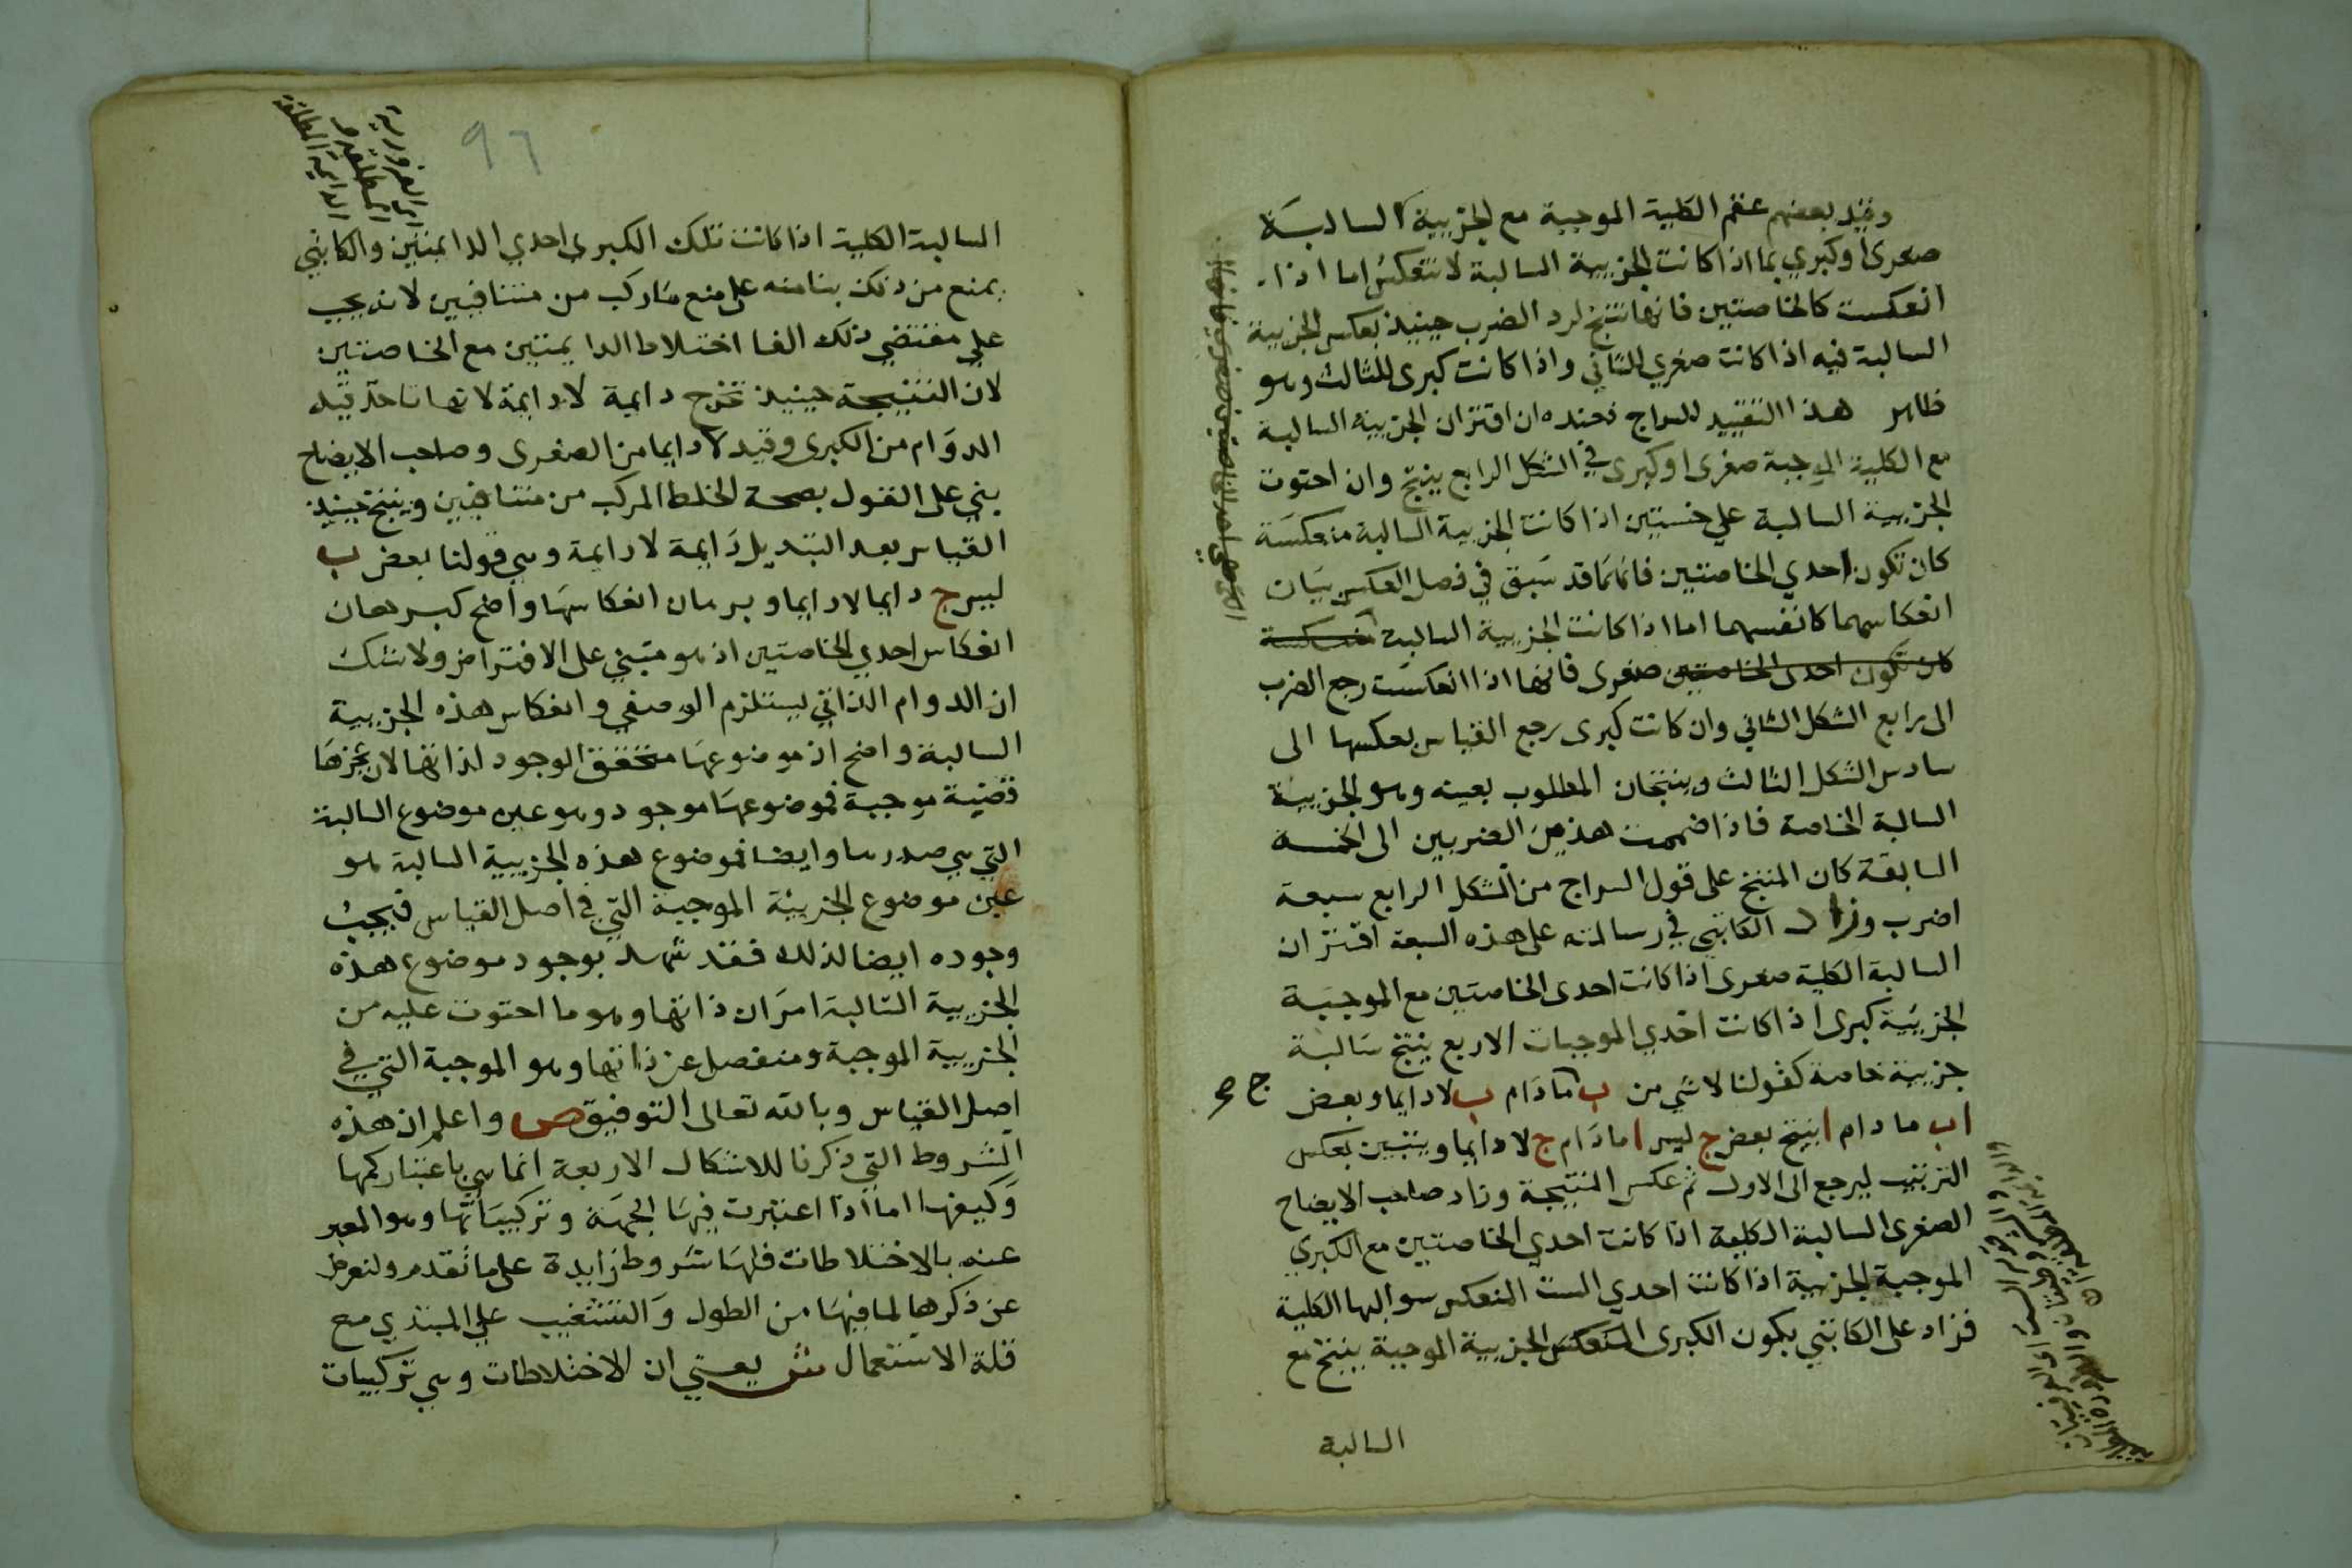 وقيد بعضهم عقم الكلية الموجبة مع الجزيية السالبة
صغرى او كبري بما اذا كانت الجزيية السالبة لا تنعكس اما اذا
انعكست كالخاصتين فانها تنتج لرد الضرب حينيذ بعكس الجزيية
السالبة فيه اذا كانت صغري للثاني واذا كانت كبرى للثالث وهو
ظاهر هذا التقييد للسراج فعنده ان اقتران الجزيية السالبة
مع الكلية الموجبة صغرى او كبرى في الشكل الرابع ينتج وان احتوت
الجزيية السالبة علي خستين اذا كانت الجزيية السالبة منعكسة
كان تكون احدي الخاصتين فانهما قد سبق في فصل العكس بيان
انعكاسهما كانفسهما اما اذا كانت الجزيية السالبة منعكسة
كان تكون احدى الخاصتين صغرى فانها اذا انعكست رجع الضرب
الى رابع الشكل الثاني وان كانت كبرى رجع القياس بعكسها الى
سادس الشكل الثالث وينتجان المطلوب بعينه وهو الجزيية
السالبة الخاصة فاذا ضممت هذين الضربين الى الخمسة
السابقة كان المنتج على قول السراج من الشكل الرابع سبعة
اضرب وزاد الكاتبي في رسالته على هذه السبعة اقتران
السالبة الكلية صغرى اذا كانت احدى الخاصتين مع الموجبة
الجزيية كبرى اذا كانت احدي الموجبات الاربع ينتج سالبة
جزيية خاصة كقولنا لا شي من ب ما دام ب لا دايما وبعض
ا ب ما دام ا ينتج بعض ج ليس ا ما دام ج لا دايما ويتبين بعكس
الترتيب ليرجع الى الاول ثم عكس النتيجة وزاد صاحب الايضاح
الصغرى السالبة الكلية اذا كانت احدي الخاصتين مع الكبري
الموجبة الجزيية اذا كانت احدي الست المنعكس سوالبها الكلية
فزاد على الكاتبي بكون الكبرى المنعكس الجزيية الموجبة ينتج مع
السالبة
96
السالبة الكلية اذا كانت تلك الكبرى احدي الدايمتين والكاتبي
يمنع من ذلك بنا منه على منع ما ركب من متنافيين لانه يجب
علي مقتضي ذلك الغا اختلاط الدايمتين مع الخاصتين
لان النتيجة حينيذ تخرج دايمة لا دايمة لانها تاخذ قيد
الدوام من الكبرى وقيد لا دايما من الصغرى وصاحب الايضاح
بني على القول بصحة الخلط المركب من متنافيين وينتج حينيذ
القياس بعد التبديل دايمة لا دايمة وهي قولنا بعض ب
ليس ج دايما لا دايما وبرهان انعكاسها واضح كبرهان
انعكاس احدي الخاصتين اذ هو مبني على الافتراض ولا شك
ان الدوام الذاتي يستلزم الوصفي وانعكاس هذه الجزيية
السالبة واضح اذ موضوعها متحقق الوجود لذاتها لان عجزها
قضية موجبة فموضوعها موجود وهو عين موضوع السالبة
التي هي صدرها وايضا فموضوع هذه الجزيية السالبة هو
عين موضوع الجزيئة الموجبة التي في اصل القياس فيجب
وجوده ايضا لذلك فقد شهد بوجود موضوع هذه
الجزيية السالبة امران ذاتها وهو ما احتوت عليه من
الجزيية الموجبة ومنفصل عن ذاتها وهو الموجبة التي في
اصل القياس وبالله تعالى التوفيق ص واعلم ان هذه
الشروط التي ذكرنا للاشكال الاربعة انما هي باعتبار كمها
وكيفها اما اذا اعتبرت فيها الجهة وتركيباتها وهو المعبر
عنه بالاختلاطات فلها شروط زايدة على ما تقدم ولنعرض
عن ذكرها لما فيها من الطول والتشغيب علي المبتدي مع
قلة الاستعمال ش يعني ان الاختلاطات وهي تركيبات